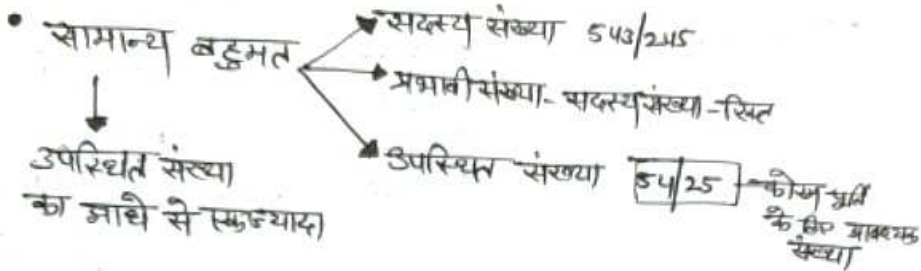 • सामान्य बहुमत
सदस्य संख्या 543/245
प्रभावी संख्या - सदस्य संख्या - रिक्त
उपस्थित संख्या 54/25 - कोरम पूर्ति
के लिए आवश्यक
संख्या
उपस्थित संख्या
का आधे से एक ज्यादा